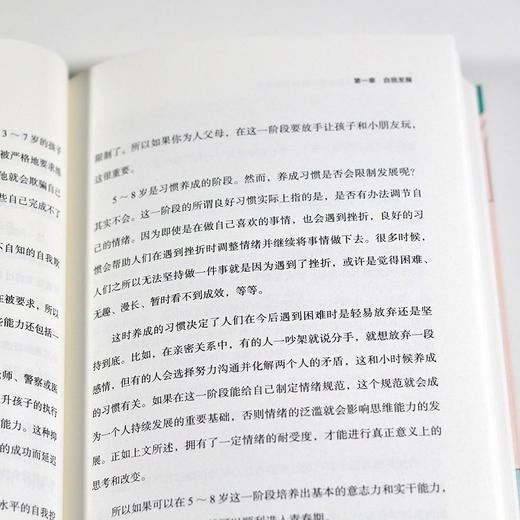 3～7岁的孩子
被严格地要求练
他就会欺骗自己
些自己完成不了
不自知的自我欺
在被要求，所以
些能力还包括一
老师、警察或医
升孩子的执行
能力。这种抑
的成功而延迟
水平的自我控
第一章 自我发展
限制了。所以如果你为人父母，在这一阶段要放手让孩子和小朋友玩，
这很重要。
5～8岁是习惯养成的阶段。然而，养成习惯是否会限制发展呢？
其实不会。这一阶段的所谓良好习惯实际上指的是，是否有办法调节自
己的情绪。因为即使是在做自己喜欢的事情，也会遇到挫折，良好的习
惯会帮助人们在遇到挫折时调整情绪并继续将事情做下去。很多时候，
人们之所以无法坚持做一件事就是因为遇到了挫折，或许是觉得困难、
无趣、漫长、暂时看不到成效，等等。
这时养成的习惯决定了人们在今后遇到困难时是轻易放弃还是坚
持到底。比如，在亲密关系中，有的人一吵架就说分手，就想放弃一段
感情，但有的人会选择努力沟通并化解两个人的矛盾，这和小时候养成
的习惯有关。如果在这一阶段能给自己制定情绪规范，这个规范就会成
为一个人持续发展的重要基础，否则情绪的泛滥就会影响思维能力的发
展。正如上文所述，拥有了一定情绪的耐受度，才能进行真正意义上的
思考和改变。
所以如果可以在5～8岁这一阶段培养出基本的意志力和实干能力，